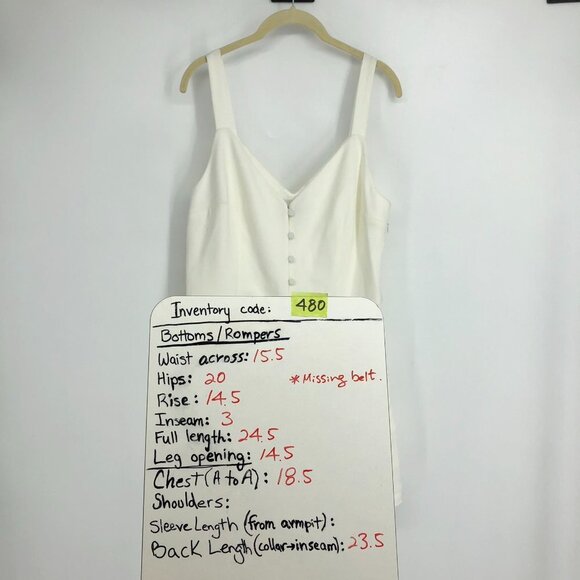 Inventory code: 480
Bottoms/Rompers
Waist across: 15.5
Hips: 20 *Missing belt.
Rise: 14.5
Inseam: 3
Full length: 24.5
Leg opening: 14.5
Chest (A to A): 18.5
Shoulders:
Sleeve Length (from armpit):
Back Length (collar→inseam): 23.5